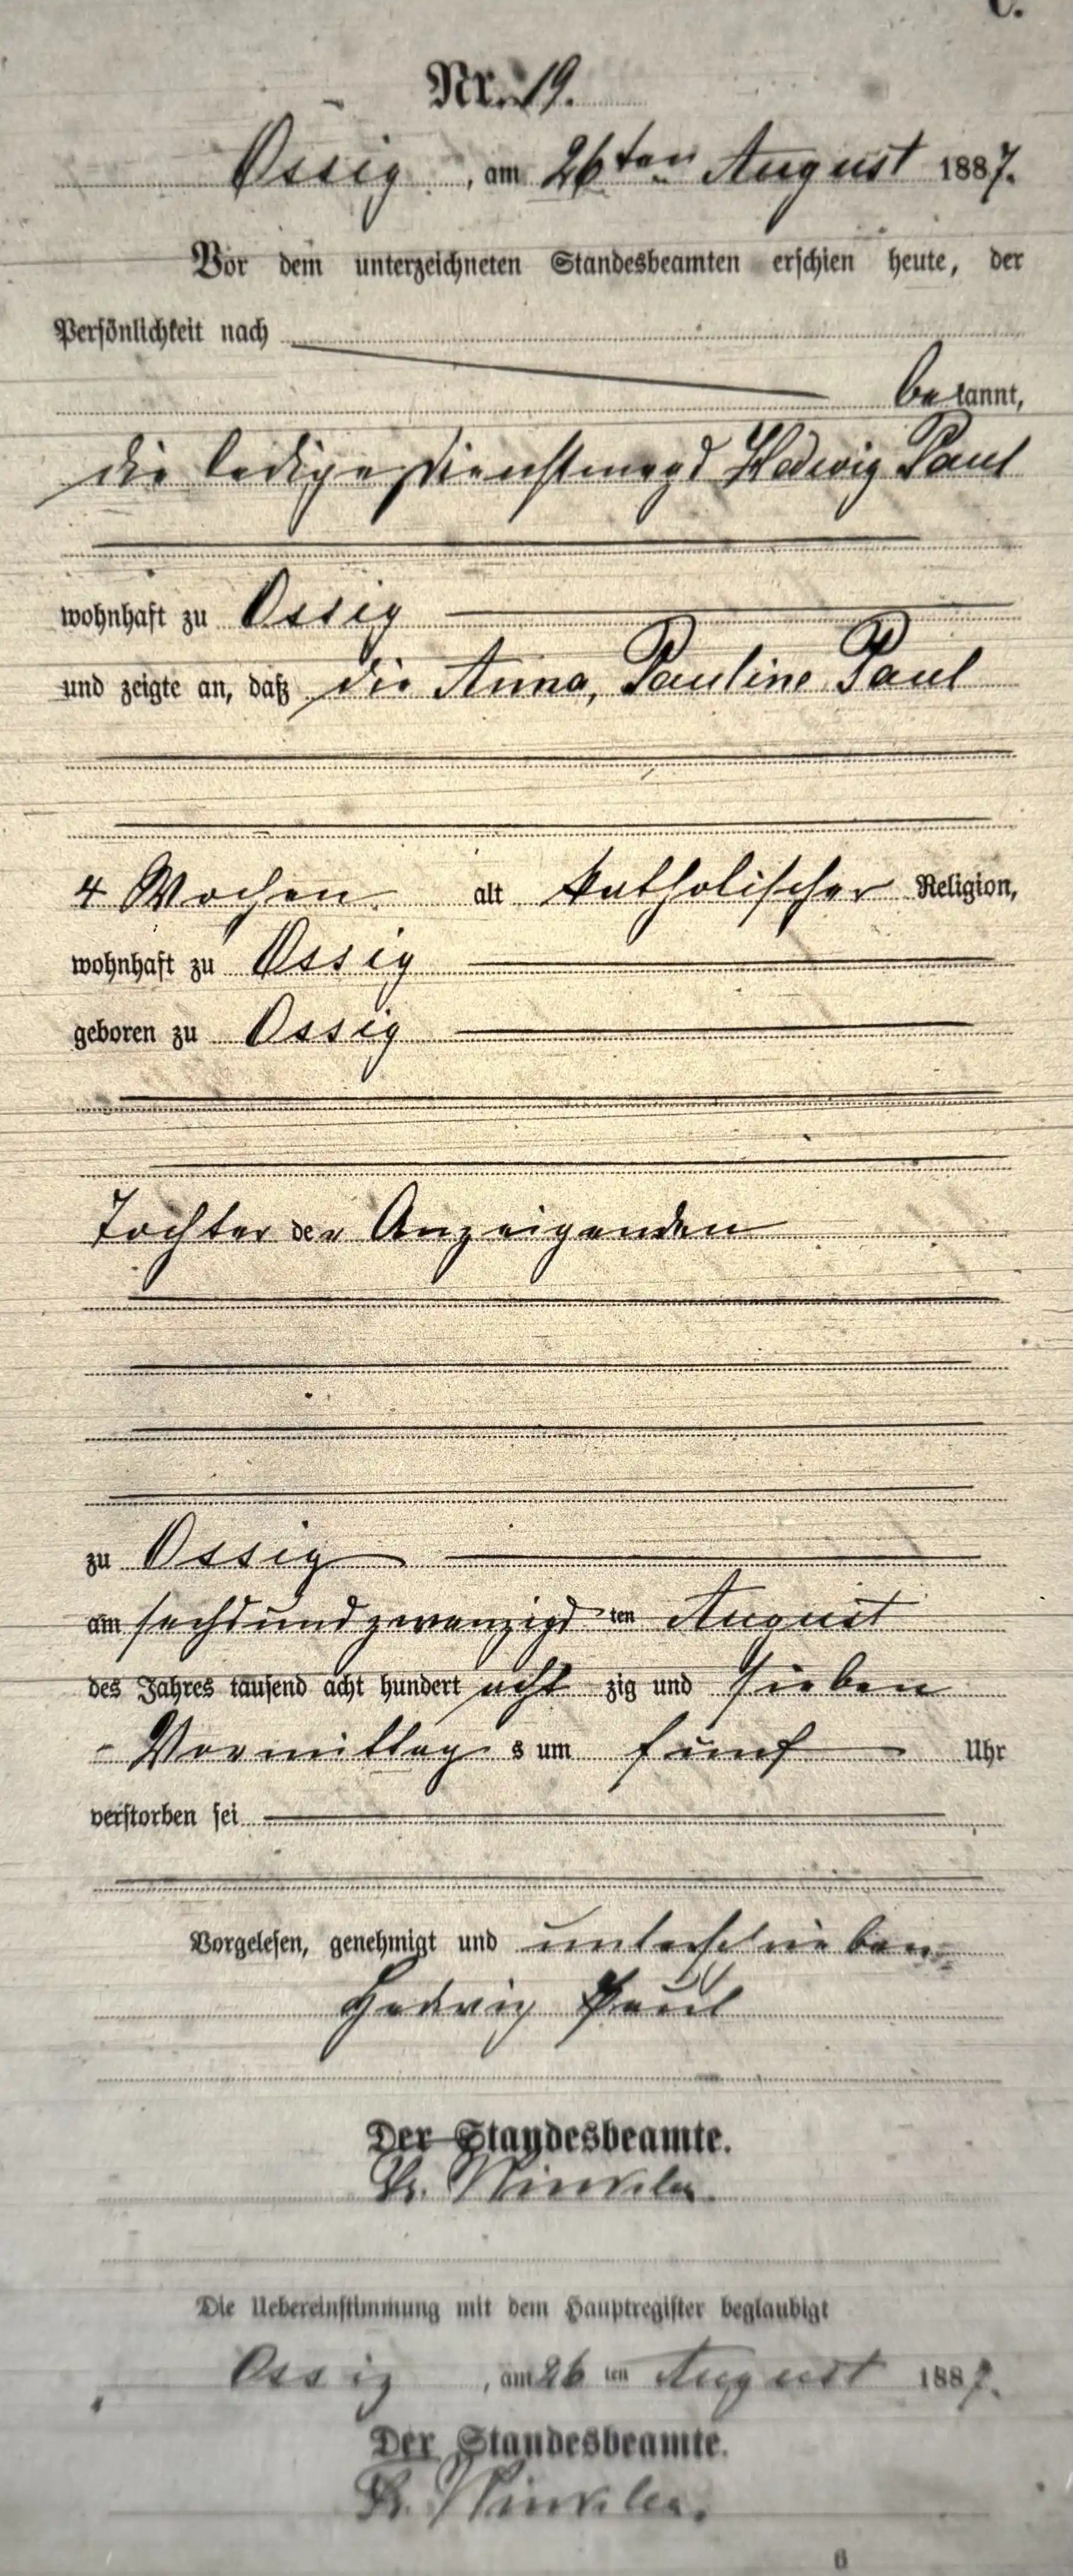 C.
Nr. 19.
Ossig, am 26ten August 1887.
Vor dem unterzeichneten Standesbeamten erschien heute, der
Persönlichkeit nach
bekannt,
die ledige Dienstmagd Hedwig Paul
wohnhaft zu Ossig
und zeigte an, daß die Anna, Pauline Paul
4 Wochen alt katholischer Religion,
wohnhaft zu Ossig
geboren zu Ossig
Tochter der Anzeigenden
zu Ossig
am sechsundzwanzigsten August
des Jahres tausend acht hundert achtzig und sieben
Vormittags um fünf Uhr
verstorben sei
Vorgelesen, genehmigt und unterschrieben
Hedwig Paul
Der Standesbeamte.
Winkler.
Die Uebereinstimmung mit dem Hauptregister beglaubigt
Ossig, am 26ten August 1887.
Der Standesbeamte.
Winkler.
6